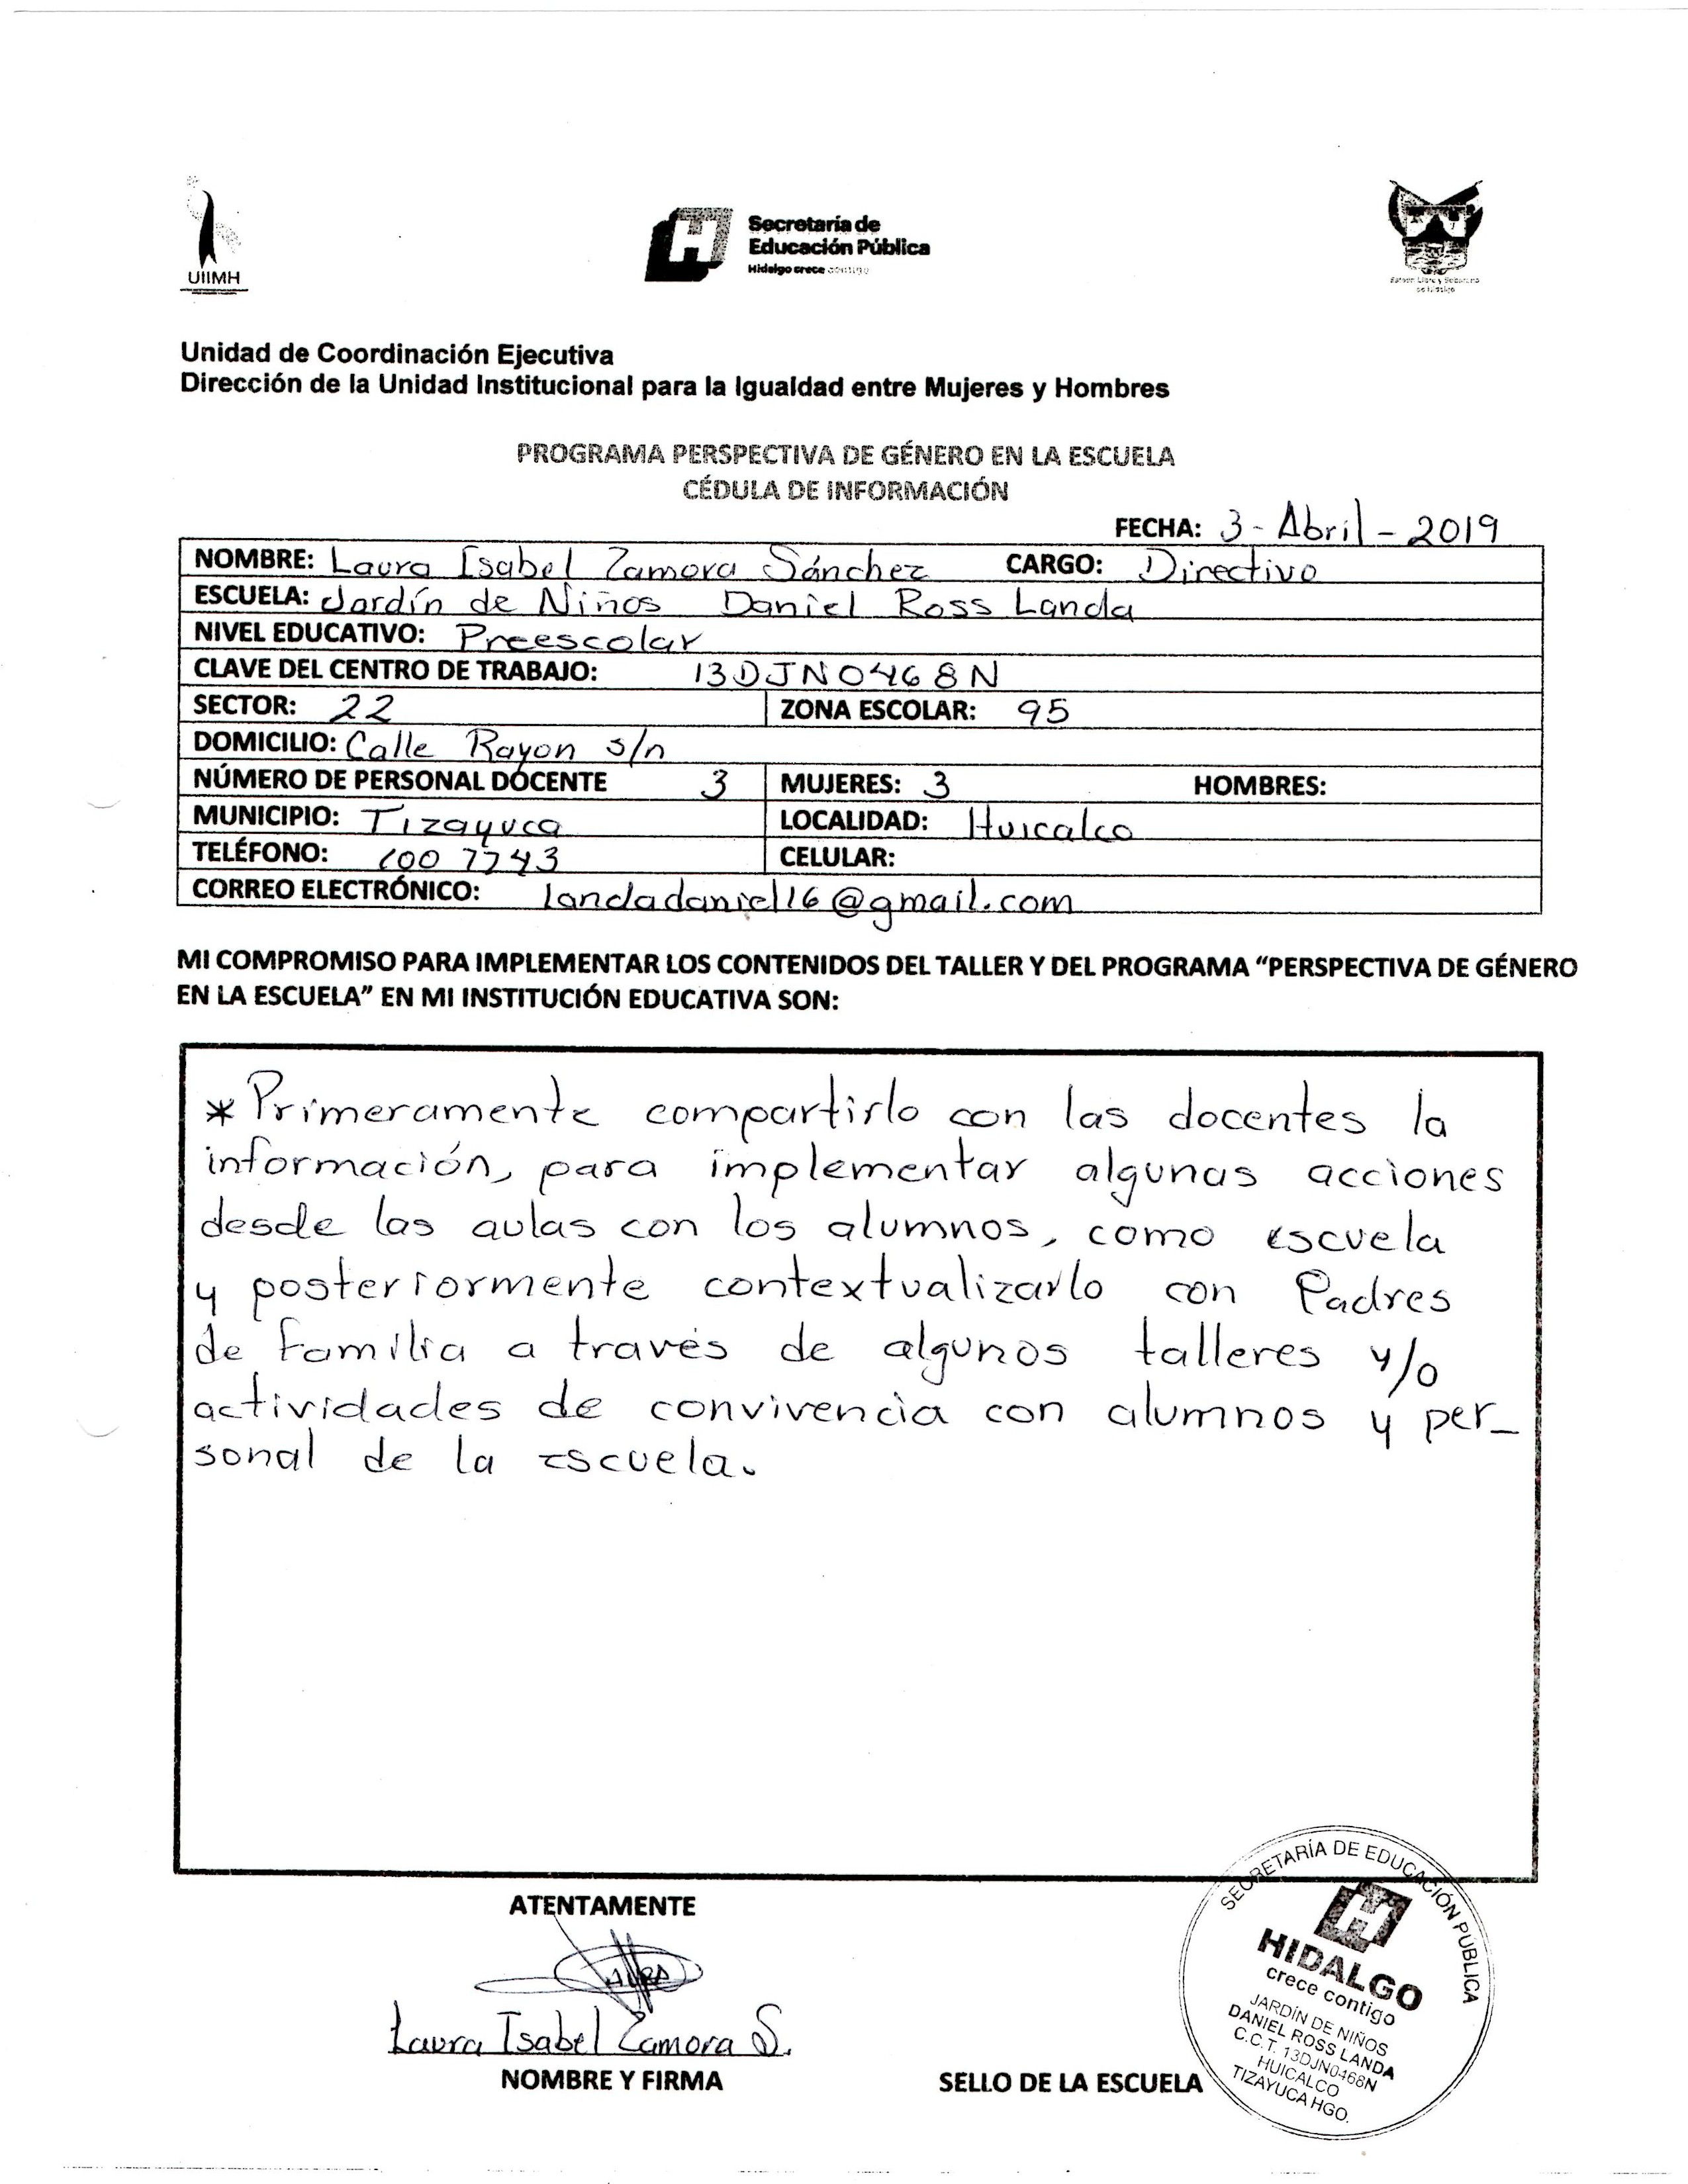 UIIMH
Secretaría de
Educación Pública
Hidalgo crece contigo
Estado Libre y Soberano
de Hidalgo
Unidad de Coordinación Ejecutiva
Dirección de la Unidad Institucional para la Igualdad entre Mujeres y Hombres
PROGRAMA PERSPECTIVA DE GÉNERO EN LA ESCUELA
CÉDULA DE INFORMACIÓN
FECHA: 3-Abril-2019
NOMBRE: Laura Isabel Zamora Sánchez CARGO: Directivo
ESCUELA: Jardín de Niños Daniel Ross Landa
NIVEL EDUCATIVO: Preescolar
CLAVE DEL CENTRO DE TRABAJO: 13DJN0468N
SECTOR: 22 ZONA ESCOLAR: 95
DOMICILIO: Calle Rayon s/n
NÚMERO DE PERSONAL DOCENTE 3 MUJERES: 3 HOMBRES:
MUNICIPIO: Tizayuca LOCALIDAD: Huicalco
TELÉFONO: 100 7743 CELULAR:
CORREO ELECTRÓNICO: landadaniel16@gmail.com
MI COMPROMISO PARA IMPLEMENTAR LOS CONTENIDOS DEL TALLER Y DEL PROGRAMA “PERSPECTIVA DE GÉNERO
EN LA ESCUELA” EN MI INSTITUCIÓN EDUCATIVA SON:
* Primeramente compartirlo con las docentes la
información, para implementar algunas acciones
desde las aulas con los alumnos, como escuela
y posteriormente contextualizarlo con Padres
de Familia a través de algunos talleres y/o
actividades de convivencia con alumnos y per_
sonal de la Escuela.
ATENTAMENTE
Laura Isabel Zamora S.
NOMBRE Y FIRMA
SELLO DE LA ESCUELA
SECRETARÍA DE EDUCACIÓN PÚBLICA
HIDALGO
crece contigo
JARDÍN DE NIÑOS
DANIEL ROSS LANDA
C.C.T. 13DJN0468N
HUICALCO
TIZAYUCA HGO.